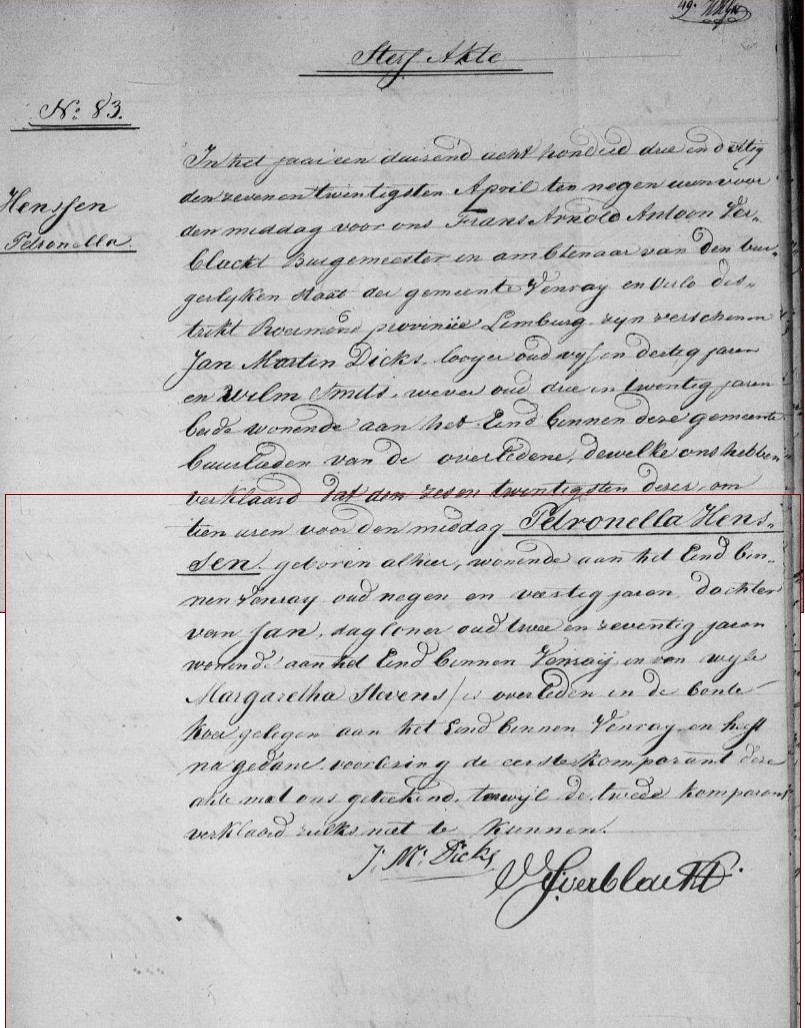 49.
Sterf Akte
N: 83.
Henssen
Petronella
In het jaar een duisend acht honderd drie en dertig
den zevenentwintigsten April ten negen uren voor
den middag voor ons Frans Arnold Antoon Ver-
blackt Burgemeester en ambtenaar van den bur-
gerlyken staat der gemeente Venray en Oirlo dis-
trikt Roermond provincie Limburg zyn verschenen
Jan Martin Dicks, looyer oud vyf en dertig jaren
en Wilm Smits, wever oud drie en twentig jaren
beide wonende aan het Eind binnen deze gemeente
buurlieden van de overledene, dewelke ons hebben
verklaard dat den zes en twentigsten dezer, om
tien uren voor den middag Petronella Hens-
sen geboren alhier, wonende aan het Eind bin-
nen Venray oud negen en veertig jaren, dochter
van Jan, dagloner oud twee en zeventig jaren
wonende aan het Eind binnen Venraÿ en van wyle
Margaretha Stevens/is overleden in de bonte
koe gelegen aan het Eind binnen Venray en heeft
na gedane voorlezing de eerste komparant deze
akte met ons geteekend, terwyl de tweede komparant
verklaard zulks niet te kunnen.
J: M: Dicks
Verblackt